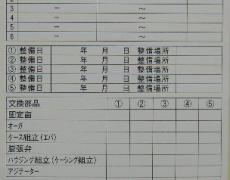 2 － ～
3 － ～
4 － ～
5 － ～
6 － ～
① 整備日 年 月 日 整備場所
② 整備日 年 月 日 整備場所
③ 整備日 年 月 日 整備場所
④ 整備日 年 月 日 整備場所
⑤ 整備日 年 月 日 整備場所
交換部品 ① ② ③ ④ ⑤
固定歯
オーガ
ケース組立(エバ)
膨張弁
ハウジング組立(ケーシング組立)
アジテーター